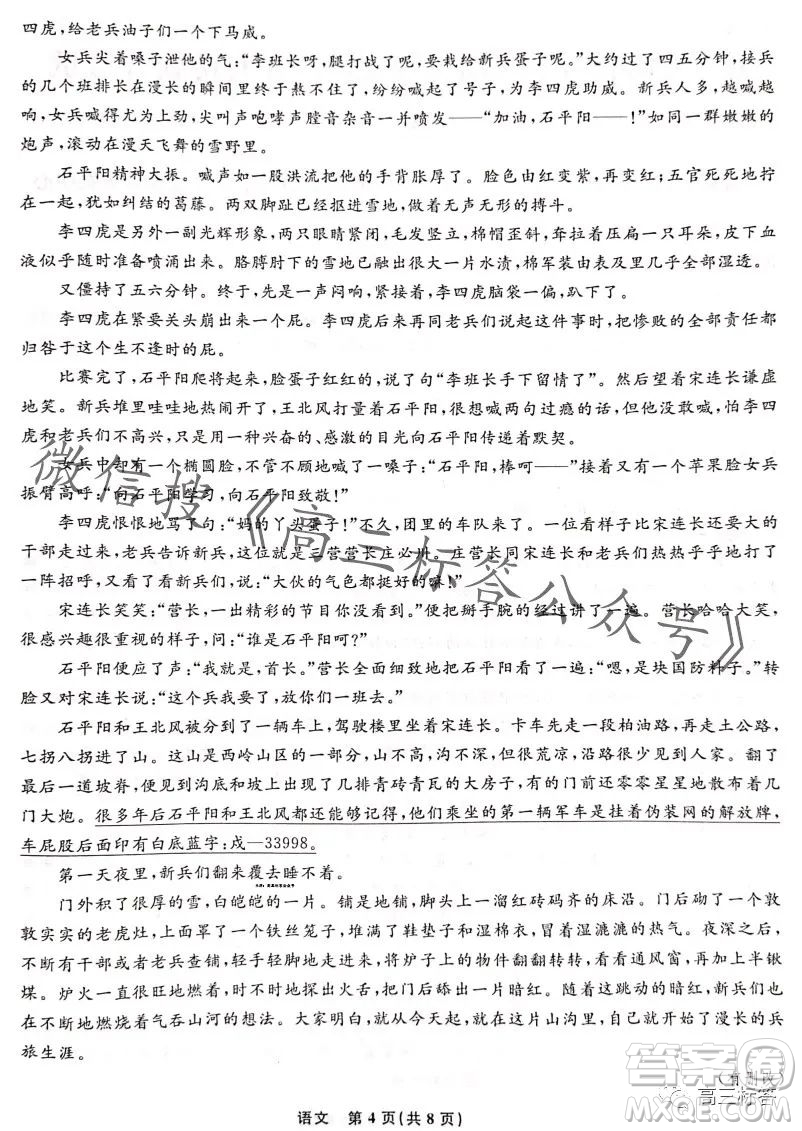 四虎，给老兵油子们一个下马威。
女兵尖着嗓子泄他的气：“李班长呀，腿打战了呢，要栽给新兵蛋子了呢。”大约过了四五分钟，接兵
的几个班排长在漫长的瞬间里终于熬不住了，纷纷喊起了号子，为李四虎助威。新兵人多，越喊越
响，女兵喊得尤为上劲，尖叫声咆哮声膛音杂音一并喷发——“加油，石平阳——！”如同一群嫩嫩的
炮声，滚动在漫天飞舞的雪野里。
石平阳精神大振。喊声如一股洪流把他的手背胀厚了。脸色由红变紫，再变红；五官死死地拧
在一起，犹如纠结的葛藤。两双脚趾已经抠进雪地，做着无声无形的搏斗。
李四虎是另外一副光辉形象，两只眼睛紧闭，毛发竖立，棉帽歪斜，耷拉着压扁一只耳朵，皮下血
液似乎随时准备喷涌出来。胳膊肘下的雪地已经融出很大一片水渍，棉军装由表及里几乎全部湿透。
又僵持了五六分钟。终于，先是一声闷响，紧接着，李四虎脑袋一偏，趴下了。
李四虎在紧要关头崩出来一个屁。李四虎后来再同老兵们说起这件事时，把惨败的全部责任都
归咎于这个生不逢时的屁。
比赛完了，石平阳爬将起来，脸蛋子红红的，说了句“李班长手下留情了”。然后望着宋连长谦虚
地笑。新兵堆里哇哇地热闹开了，王北风打量着石平阳，很想喊两句过瘾的话，但他没敢喊，怕李四
虎和老兵们不高兴，只是用一种兴奋的、感激的目光向石平阳传递着默契。
女兵中却有一个椭圆脸，不管不顾地喊了一嗓子：“石平阳，棒呵——！”接着又一个苹果脸女兵
振臂高呼：“向石平阳学习，向石平阳致敬！”
李四虎恨恨地骂了句：“妈的丫头蛋子！”不久，团里的车队来了。一位看样子比宋连长还要大的
干部走过来，老兵告诉新兵，这位就是三营营长庄必川。庄营长同宋连长和老兵们热热乎乎地打了
一阵招呼，又看了看新兵们，说：“大伙的气色都挺好的嘛！”
宋连长笑笑：“营长，一出精彩的节目你没看到。”便把掰手腕的经过讲了一遍。营长哈哈大笑，
很感兴趣很重视的样子，问：“谁是石平阳呵？”
石平阳便应了声：“我就是，首长。”营长全面细致地把石平阳看了一遍：“嗯，是块国防料子。”转
脸又对宋连长说：“这个兵我要了，放你们一班去。”
石平阳和王北风被分到了一辆车上，驾驶楼里坐着宋连长。卡车先走一段柏油路，再走土公路，
七拐八拐进了山。这山是西岭山区的一部分，山不高，沟不深，但很荒凉，沿路很少见到人影。翻了
最后一道坡脊，便见到沟底和坡上出现了几排青砖青瓦的大房子，有的门前还零零星星地散布着几
门大炮。很多年后石平阳和王北风都还能够记得，他们乘坐的第一辆军车是挂着伪装网的解放牌，
车屁股后面印有白底蓝字：戍—33998。
第一天夜里，新兵们翻来覆去睡不着。
门外积了很厚的雪，白皑皑的一片。铺是地铺，脚头上一溜红砖码齐的床沿。门后加了一个敦
敦实实的老虎灶，上面罩了一个铁丝笼子，堆满了鞋垫子和湿棉衣，冒着湿漉漉的热气。夜深之后，
不断有干部或者老兵查铺，轻轻地掖掖新兵的被子，将炉子上的物件翻翻转转，有的再加上半锹
煤。炉火一直很旺地燃着，不时探出来火舌，把门后舔出一片暗红。随着这跳动的暗红，新兵们也
在不断地燃烧着气吞山河的想法。大家明白，就从今天起，就在这山沟里，自己就开始了漫长的兵
旅生涯。
（有删改）
语文　第4页（共8页）
微信搜《高三标答公众号》
高三标答
答案圈